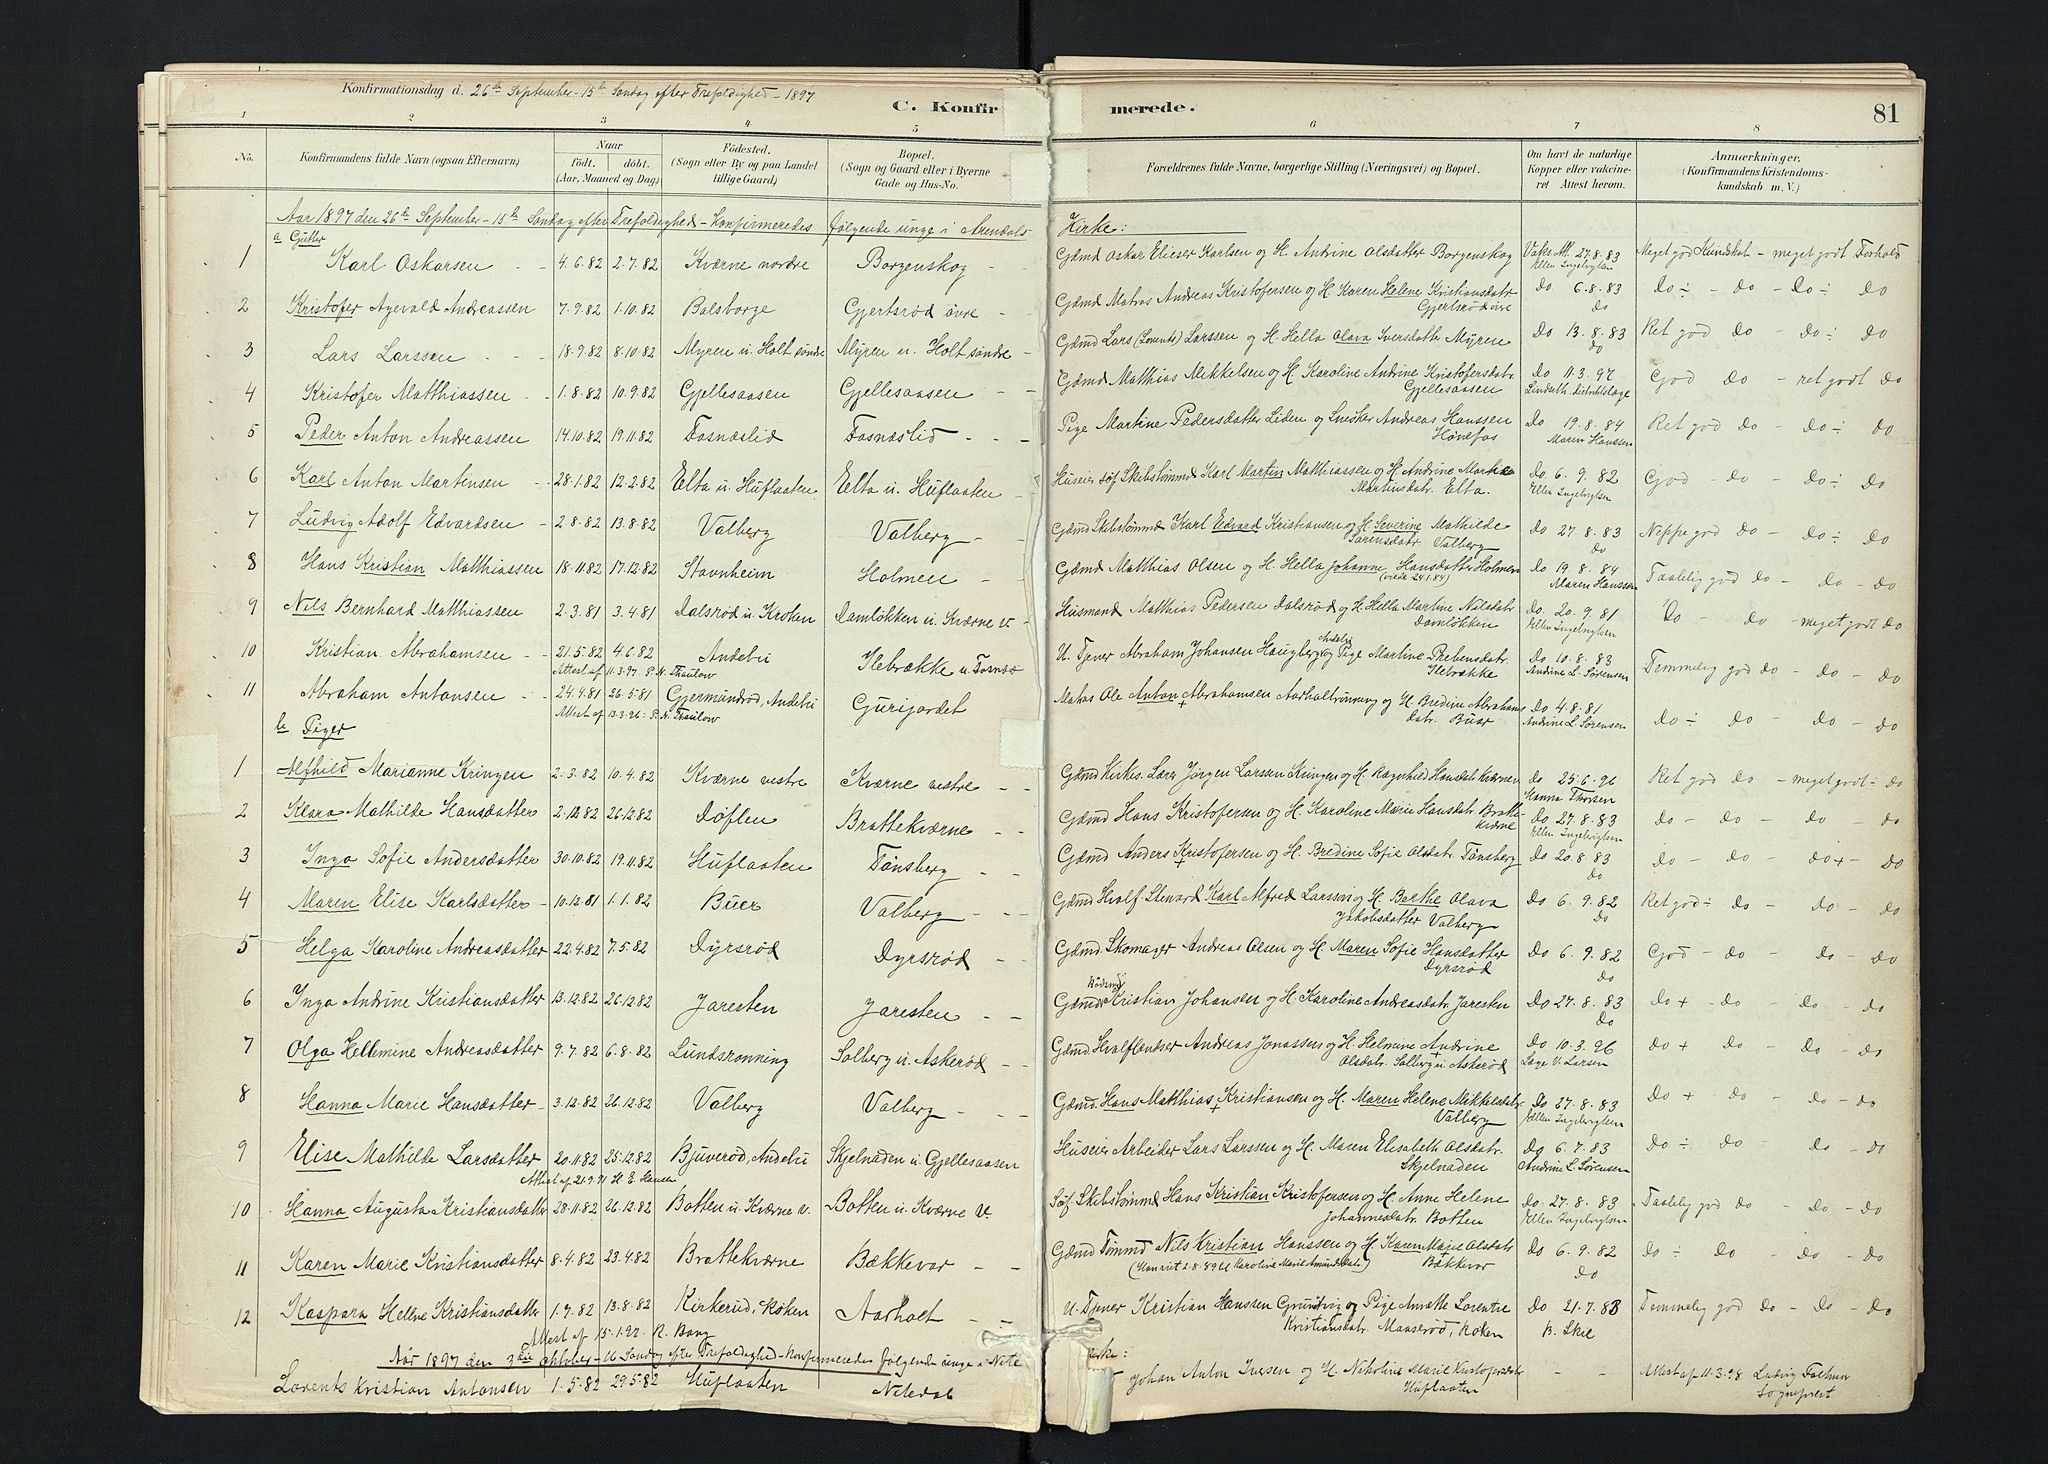 Konfirmationsdag d. 26de September - 15de Søndag efter Trefoldighed - 1897
C. Konfirmerede. 81
1 2 3 4 5 6 7 8
No. Konfirmandens fulde Navn (ogsaa Efternavn) Naar født. døbt. (Aar, Maaned og Dag) Fødested. (Sogn eller By og paa Landet tillige Gaard) Bopæl. (Sogn og Gaard eller i Byerne Gade og Hus-No. Forældrenes fulde Navne, borgerlige Stilling (Næringsvei) og Bopæl. Om havt de naturlige Kopper eller vakcineret Attest herom. Anmærkninger. (Konfirmandens Kristendomskundskab m. V.)
Aar 1897 den 26de September - 15de Søndag efter Trefoldighed - Konfirmeredes følgende unge i Arendals Kirke:
a Gutter
1 Karl Oskarsen 4.6.82 2.7.82 Kværne nordre Borgenskog Gæmd Oskar Elieser Karlsen og H. Andrine Olsdatter Borgenskog Vaks. Att. 27.8.83 Ellen Ingebrigtsen Meget god Kundskab - meget godt Forhold
2 Kristofer Agevald Andreassen 7.9.82 1.10.82 Balsborge Gjertsrød øvre Gæmd Matros Andreas Kristofersen og H. Karen Helene Kristiansdatr Gjertsrød øvre Do 6.8.83 do Do ÷ - do - Do ÷ do
3 Lars Larssen 18.9.82 8.10.82 Myren u. Holt søndre Myren u. Holt søndre Gæmd Lars (Lorents) Larssen og H. Hella Olava Iversdatter Myren Do 13.8.83 do Ret god do - do ÷ do
4 Kristofer Matthiassen 1.8.82 10.9.82 Gjellesaasen Gjellesaasen Gæmd Matthias Mikkelsen og H. Karoline Andrine Kristofersdatr Gjellesaasen Do 11.3.97 Lindseth Distriktslæge God do - ret godt do
5 Peder Anton Andreassen 14.10.82 19.11.82 Fosnæslid Fosnæslid Pige Martine Pedersdatter Liden og Svensker Andreas Hanssen Hønefos Do 19.8.84 Maren Hanssen Ret god do - do ÷ do
6 Karl Anton Martinsen 28.1.82 12.2.82 Elta u. Huflaaten Elta u. Huflaaten Huseier søf. Skibstømmd Karl Martin Matthiassen og H. Andrine Marthea Martinsdatr. Elta. Do 6.9.82 Ellen Ingebrigtsen God - do - do ÷ do
7 Ludvig Adolf Edvardsen 2.8.82 13.8.82 Valberg Valberg Gæmd Skibstømmd Karl Edvard Kristiansen og H. Severine Mathilde Sørensdatr. Valberg Do 27.8.83 do Neppe god do - do ÷ do
8 Hans Kristian Matthiassen 18.11.82 17.12.82 Stavnheim Holmen Gæmd Matthias Olsen og H. Hella Johanne Hansdatter Holmen (viede 24.1.84) Do 19.8.84 Maren Hanssen Taalelig god do - do - do
9 Nils Bernhard Matthiassen 2.3.81 3.4.81 Dalsrød u. Kroken Damløkken u. Kværne v. Husmand Matthias Pedersen Dalsrød og H. Hella Martine Nilsdatr Damløkken Do 20.9.81 Ellen Ingebrigtsen Do - do - meget godt do
10 Kristian Abrahamsen 21.5.82 4.6.82 Andebu Ilebrække u. Fosnæs U. Tjener Abraham Johansen Haugberg Andebu og Pige Martine Prebensdatr. Ilebrække Do 10.8.83 Andrine L. Sørensen Temmelig god do - do - do
Attest af 11.3.97 P. N. Thaulow
11 Abraham Antonsen 24.4.81 26.5.81 Gjermundrød, Andebu Gurijordet Matros Ole Anton Abrahamsen Aarholtrønning og H. Bredine Abrahamsdatr. Buer Do 4.8.81 Andrine L. Sørensen Do ÷ do - do - do
Attest af 13.3.96: P. N. Thaulow
b Piger
1 Alfhild Marianne Kringen 2.3.82 10.4.82 Kværne vestre Kværne vestre Gæmd Kirkes. Lærer Jørgen Larssen Kringen og H. Ragnhild Hansdatr Kværne v Do 25.6.96 Hanna Thorsen Ret god do - meget godt - do
2 Klara Mathilde Hansdatter 2.12.82 26.12.82 Døflen Brattekværne Gæmd Hans Kristofersen og H. Karoline Marie Hansdatr. Brattekværne Do 27.8.83 Ellen Ingebrigtsen do - do - do - do
3 Inga Sofie Andersdatter 30.10.82 19.11.82 Huflaaten Tønsberg Gæmd Anders Kristofersen og H. Bredine Sofie Olsdatr. Tønsberg Do 20.8.83 do do - do - do + - do
4 Maren Elise Karlsdatter 10.12.81 1.1.82 Buer Valberg Gæmd Hvalf. Steward Karl Alfred Larssen og H. Berthe Olava Jakobsdatter Valberg Do 6.9.82 do Ret god ÷ do - do - do
5 Helga Karoline Andreasdatter 22.4.82 7.5.82 Dyrsrød Dyrsrød Gæmd. Skomager Andreas Olsen og H. Maren Sofie Hansdatter Dyrsrød Do 6.9.82 do God - do - do - do
6 Inga Andrine Kristiansdatter 13.12.82 26.12.82 Jaresten Jaresten Gæmd Kristian Johansen og H. Karoline Andreasdatr. Jaresten Do 27.8.83 do do + - do - do - do
7 Olga Hellemine Andreasdatter 9.7.82 6.8.82 Lundsrønning Solberg u. Askerød Gæmd. Hvalflendser Andreas Jonassen og H. Helmine Andrine Olsdatr. Solberg u Askerød Do 10.3.96 Læge V. Larsen do + do - do - do
8 Hanna Marie Hansdatter 3.12.82 26.12.82 Valberg Valberg Gæmd. Hans Matthias Kristiansen og H. Maren Helene Mikkelsdatr. Valberg Do 27.8.83 Ellen Ingebrigtsen do + do - do - do
9 Elise Mathilde Larsdatter 20.11.82 25.12.82 Bjuerød, Andebu Skjelnaden u. Gjellesaasen Huseier Arbeider Lars Larssen og H. Maren Elisabeth Olsdatr. Skjelnaden Do 6.7.83 Andrine L Sørensen do ÷ do - do - do
Attest af 21.9.91 H. E. Hansen
10 Hanna Augusta Kristiansdatter 28.11.82 26.12.82 Botten u. Kværne v. Botten u. Kværne v. Søf. Skibstømmd Hans Kristian Kristofersen og H. Anne Helene Johannesdatr. Botten Do 27.8.83 Ellen Ingebrigtsen Taalelig god do - do - do
11 Karen Marie Kristiansdatter 8.4.82 23.4.82 Brattekværne Bækkevar Gæmd Tømmd Nils Kristian Hanssen og H. Karen Marie Olsdatr Bækkevar Do 6.9.82 do do ÷ do - do - do
12 Kaspara Helene Kristiansdatter 1.7.82 13.8.82 Kirkerud, Røken Aarholt U. Tjener Kristian Hanssen Grundvig og Pige Annette Lorentse Kristiansdatr. Maaserød, Røken Do 21.7.83 B. Skie Temmelig god do - do - do
Attest af 15.1.97. R. Bang
Aar 1897 den 3die Oktober - 16 Søndag efter Trefoldighed - konfirmeredes følgende unge i Nite
Lorents Kristian Antonsen 1.5.82 29.5.82 Huflaaten Nitedal Johan Anton Iversen og H. Nikoline Marie Kristofersdatr Huflaaten - - Attest af 11.3.98 Ludvig Sogneprest